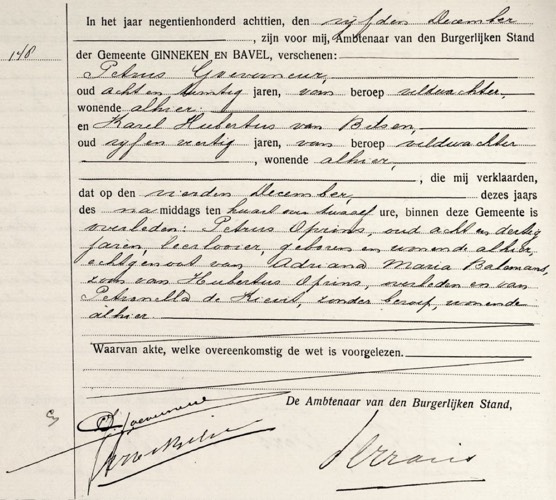 In het jaar negentienhonderd achttien, den vijfden December
, zijn voor mij, Ambtenaar van den Burgerlijken Stand
148
der Gemeente GINNEKEN EN BAVEL, verschenen:
Petrus Goeverneur,
oud acht en twintig jaren, van beroep veldwachter,
wonende alhier
en Karel Hubertus van Bilsen,
oud vijf en veertig jaren, van beroep veldwachter
, wonende alhier,
, die mij verklaarden,
dat op den vierden December, dezes jaars
des namiddags ten kwart over twaalf ure, binnen deze Gemeente is
overleden: Petrus Oprins, oud acht en dertig
jaren, leerlooier, geboren en wonende alhier,
echtgenoot van Adriana Maria Balemans,
zoon van Hubertus Oprins, overleden en van
Petronella de Kievit, zonder beroep, wonende
alhier.
Waarvan akte, welke overeenkomstig de wet is voorgelezen.
De Ambtenaar van den Burgerlijken Stand,
P. Goeverneur